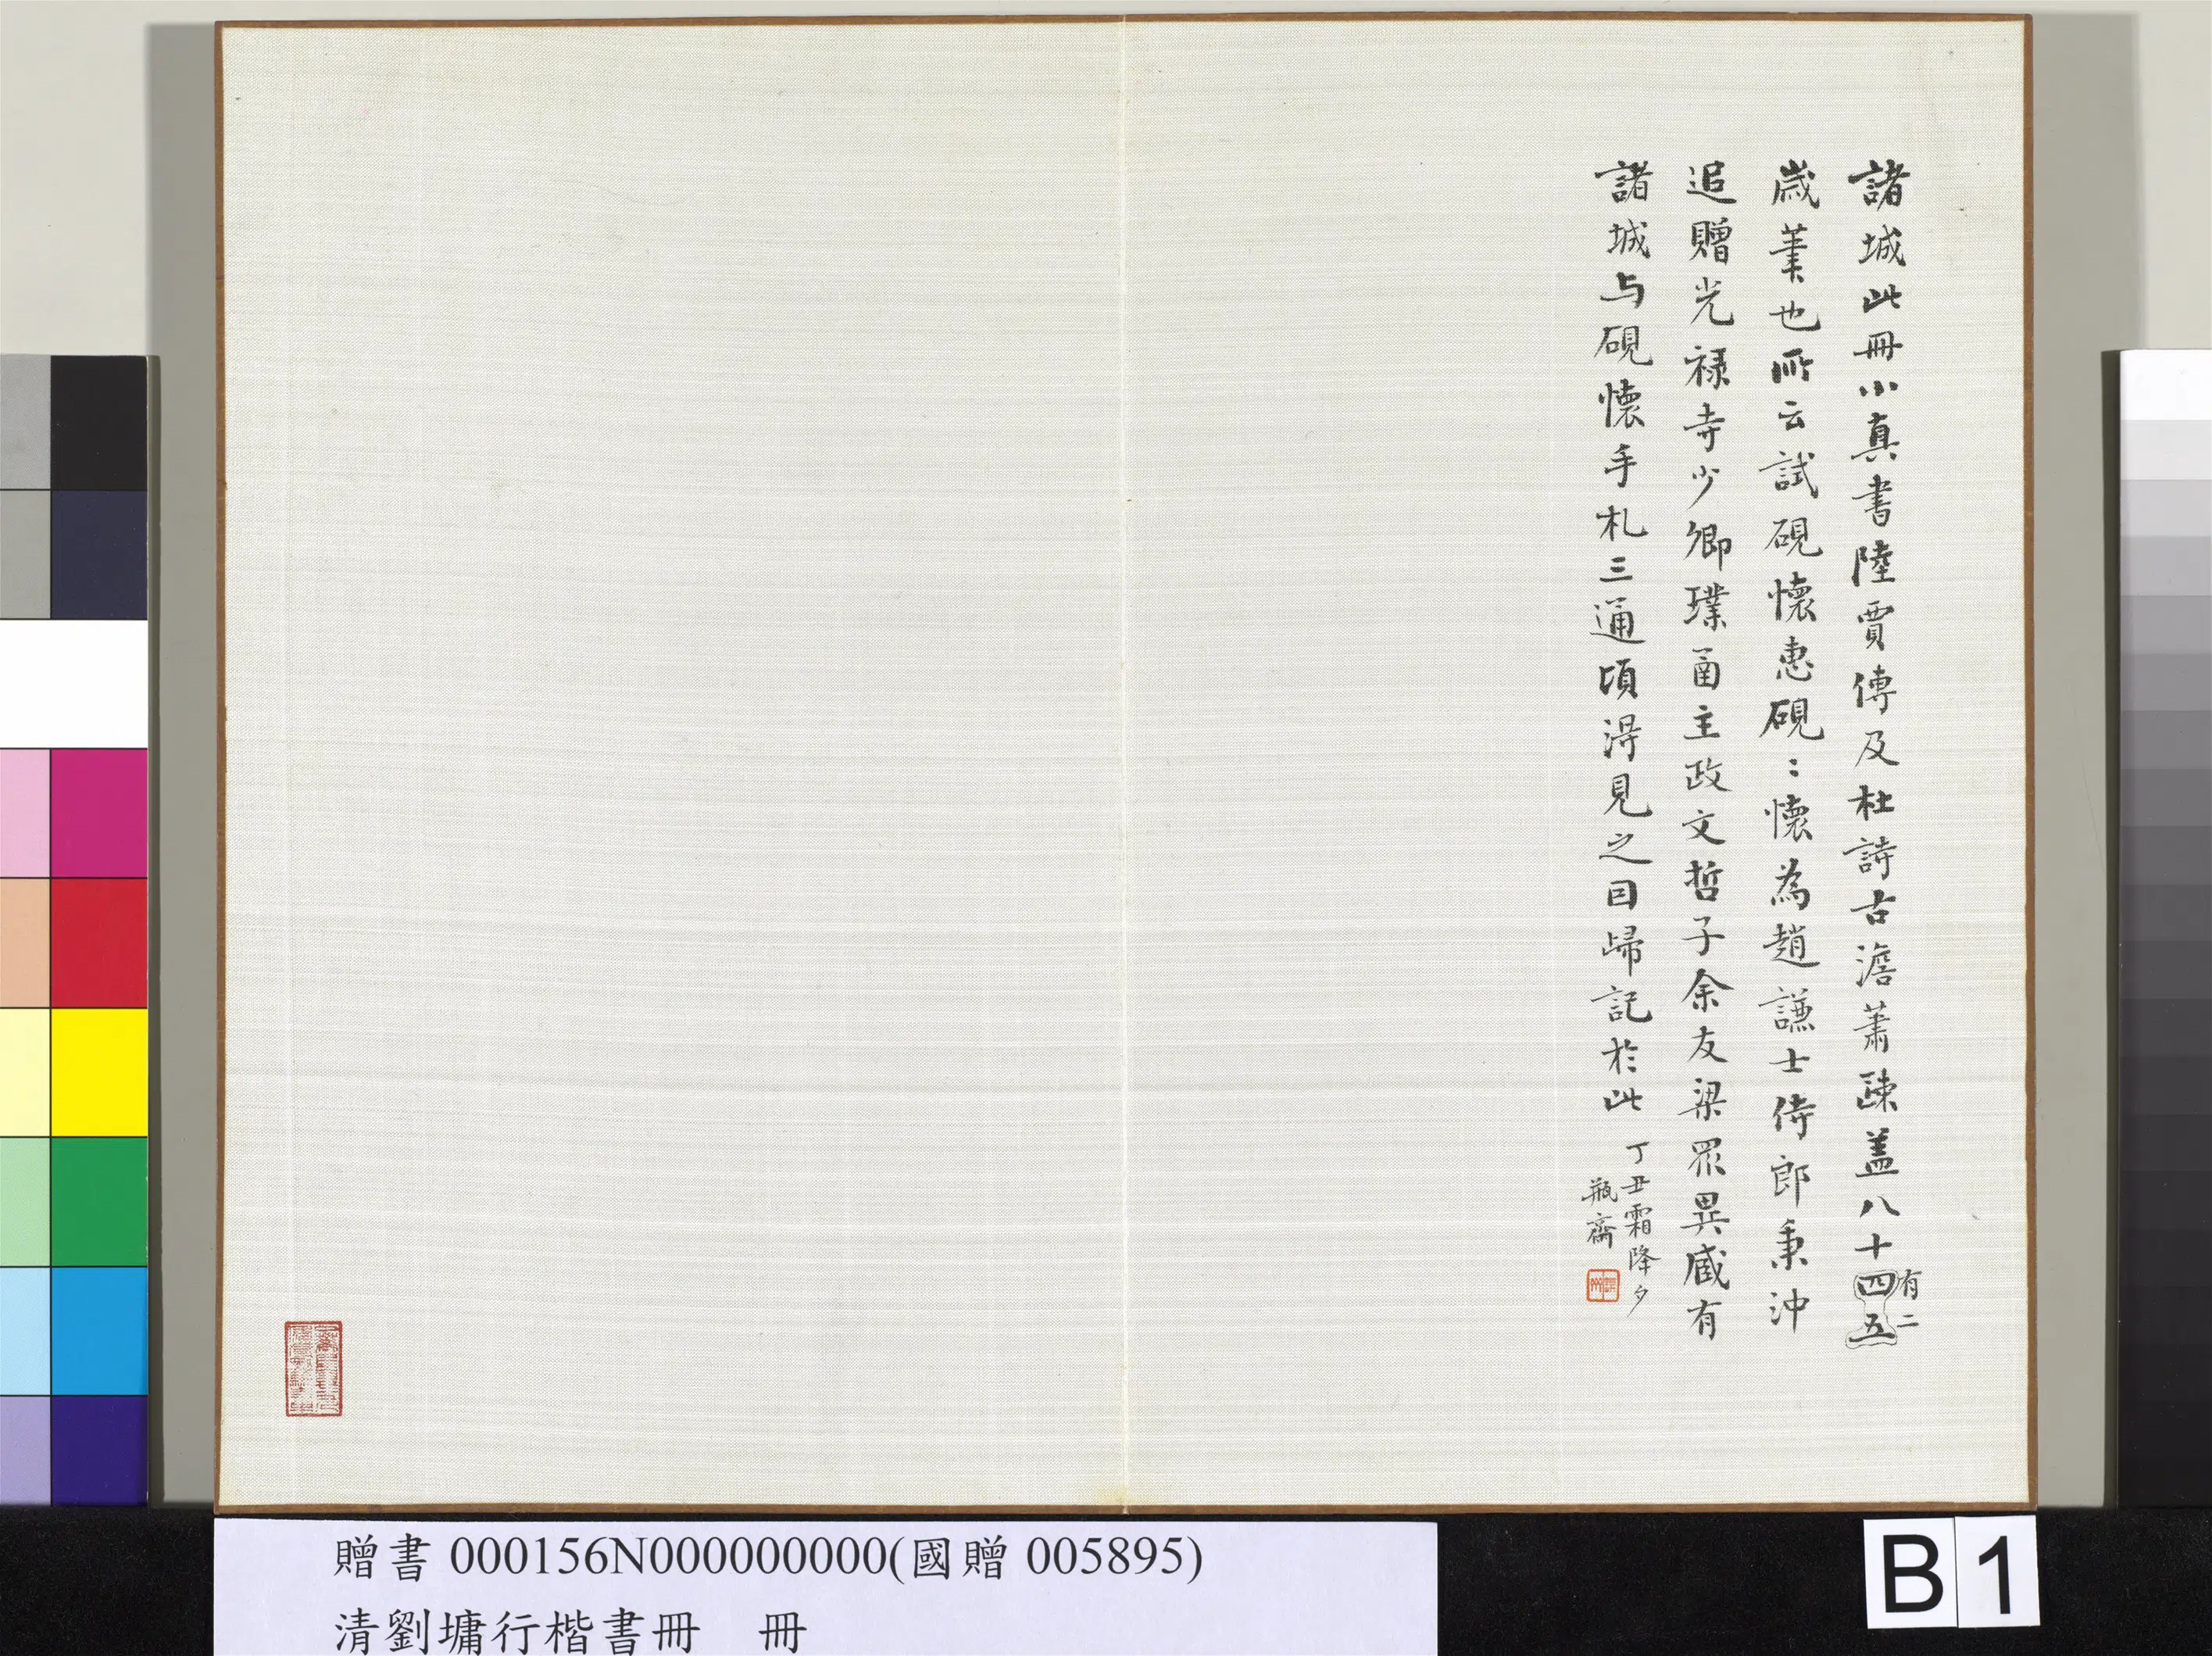 諸城此冊小真書陸賈傳及杜詩古澹蕭疎蓋八十四五
有二
歲筆也所云試硯懷惠硯:懷為趙謙士侍郎秉沖
追贈光祿寺少卿璞函主政文哲子余友梁眾異藏有
諸城与硯懷手札三通頃淂見之因歸記於此
丁丑霜降夕
瓶齋
贈書 000156N000000000(國贈 005895)
清劉墉行楷書冊 冊
B 1